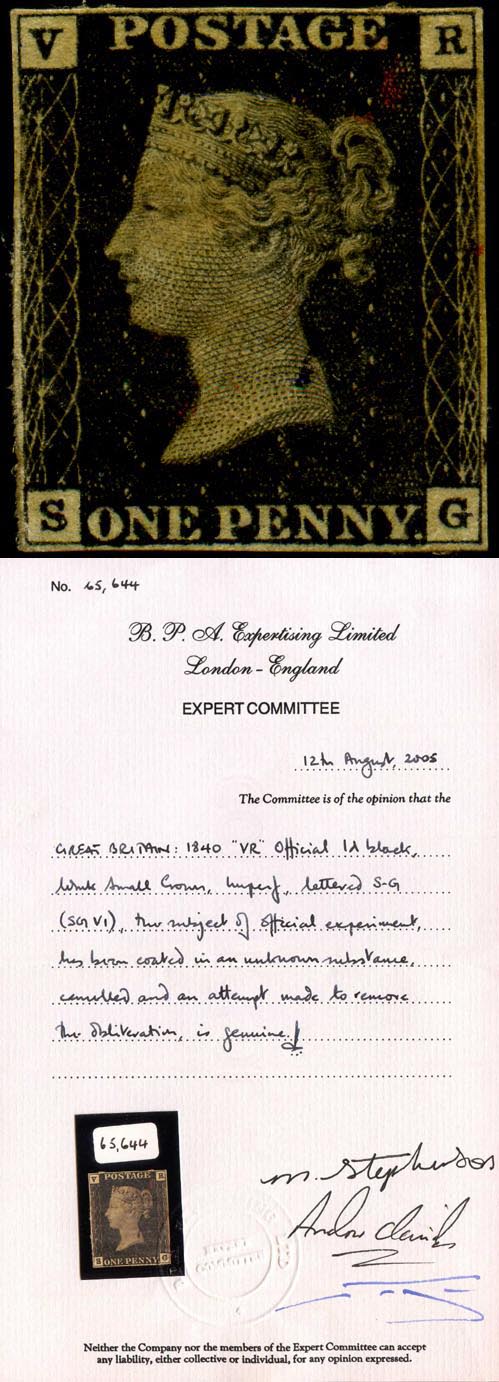 V POSTAGE R
S ONE PENNY. G
No. 65,644
B. P. A. Expertising Limited
London - England
EXPERT COMMITTEE
12th August, 2005
The Committee is of the opinion that the
GREAT BRITAIN: 1840 "VR" Official 1d black,
Wmk Small Crown, Imperf, lettered S-G
(SG V1), the subject of official experiment,
has been coated in an unknown substance,
cancelled and an attempt made to remove
the obliteration, is genuine.
65,644
V POSTAGE R
S ONE PENNY. G
EXPERT
COMMITTEE
M. Stephenson
Neither the Company nor the members of the Expert Committee can accept
any liability, either collective or individual, for any opinion expressed.